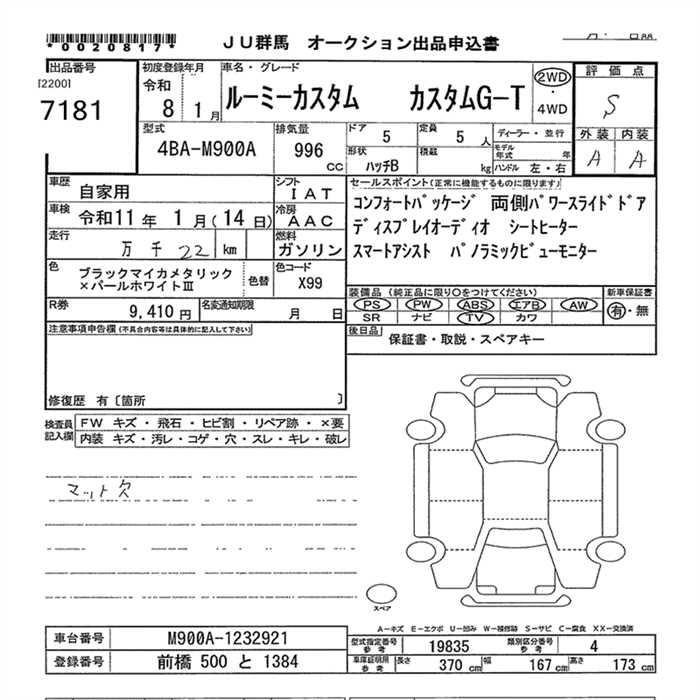 *0020817*
JU群馬 オークション出品申込書
出品番号
[2200]
7181
初度登録年月
令和
8 1月
車名・グレード
ルーミーカスタム カスタムG-T
2WD
・
4WD
評価点
S
外装 内装
A A
型式
4BA-M900A
排気量
996
cc
ドア
5
定員
5 人
形状
ハッチB
積載
kg
ディーラー・並行
モデル年式 年
ハンドル 左・右
車歴
自家用
シフト
IAT
車検
令和11年 1月(14日)
冷房
AAC
走行
万千22 km
燃料
ガソリン
色
ブラックマイカメタリック
×パールホワイトⅢ
色替
色コード
X99
R券
9,410円
名変通知期限
月 日
セールスポイント(正常に機能するものに限ります)
コンフォートパッケージ 両側パワースライドドア
ディスプレイオーディオ シートヒーター
スマートアシスト パノラミックビューモニター
装備品 (純正品に限り○をつけてください)
PS PW ABS エアB AW
SR ナビ TV カワ
新車保証書
有・無
後日品
保証書・取説・スペアキー
注意事項申告欄(不具合内容等は具体的に記入して下さい)
修復歴 有〔箇所 〕
検査員
記入欄
FW キズ・飛石・ヒビ割・リペア跡・×要
内装 キズ・汚レ・コゲ・穴・スレ・キレ・破レ
マット欠
スペア
A-キズ E-エクボ U-凹み W-補修跡 S-サビ C-腐食 XX-交換済
車台番号
M900A-1232921
登録番号
前橋 500 と 1384
型式指定番号
参考
19835
類別区分番号
参考
4
車庫証明用
参考
長さ
370 cm
幅
167 cm
高さ
173 cm